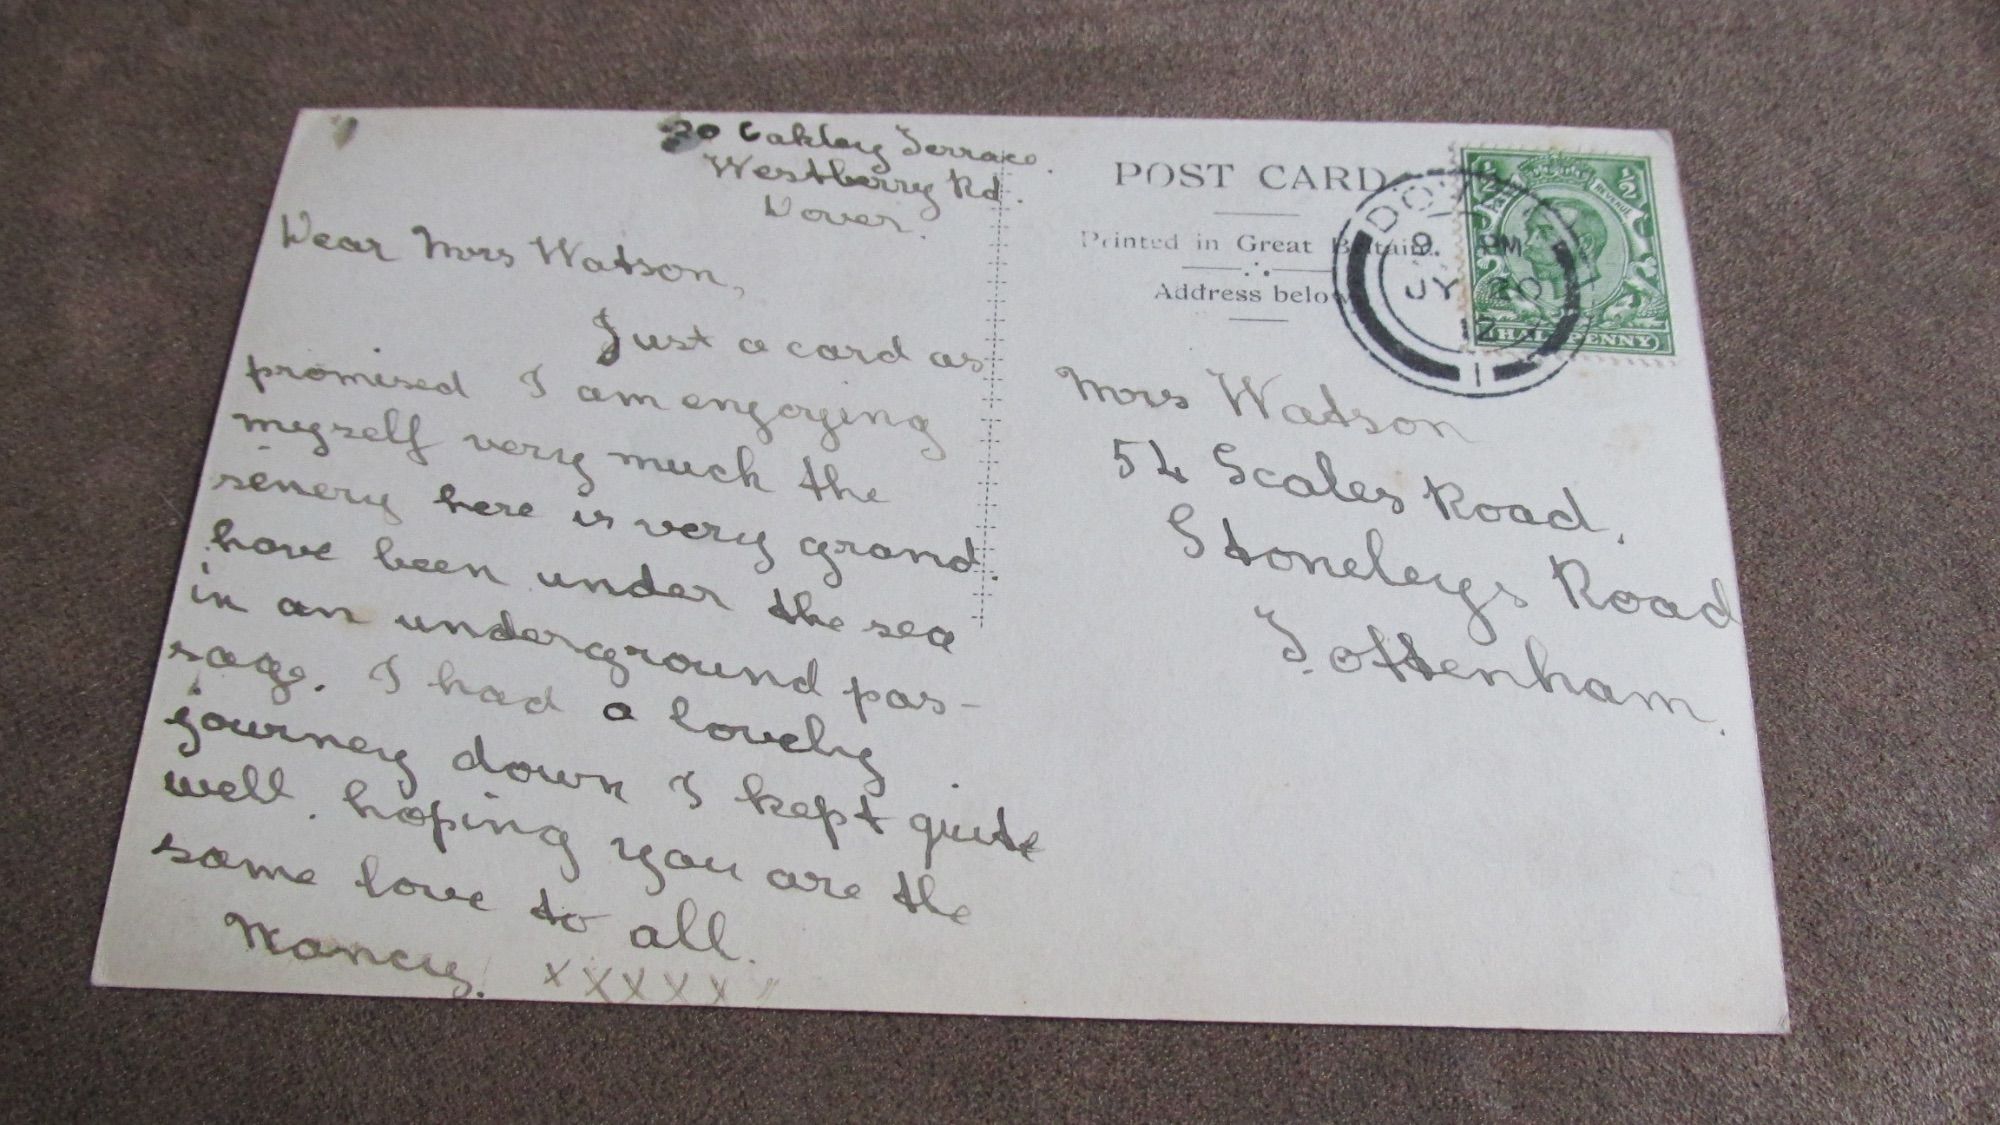 20 Oakley Terrace.
Westberry Rd.
Dover.
Dear Mrs Watson,
Just a card as
promised I am enjoying
myself very much the
senery here is very grand.
have been under the sea
in an underground pas-
sage. I had a lovely
journey down I kept quite
well. hoping you are the
same love to all.
Nancy. xxxxx
POST CARD.
Printed in Great Britain.
Address below
DOVER
9 PM
JY 20
12
1
½ ½
REVENUE
HALFPENNY
Mrs Watson
54 Scales Road,
Stoneleys Road
Tottenham.